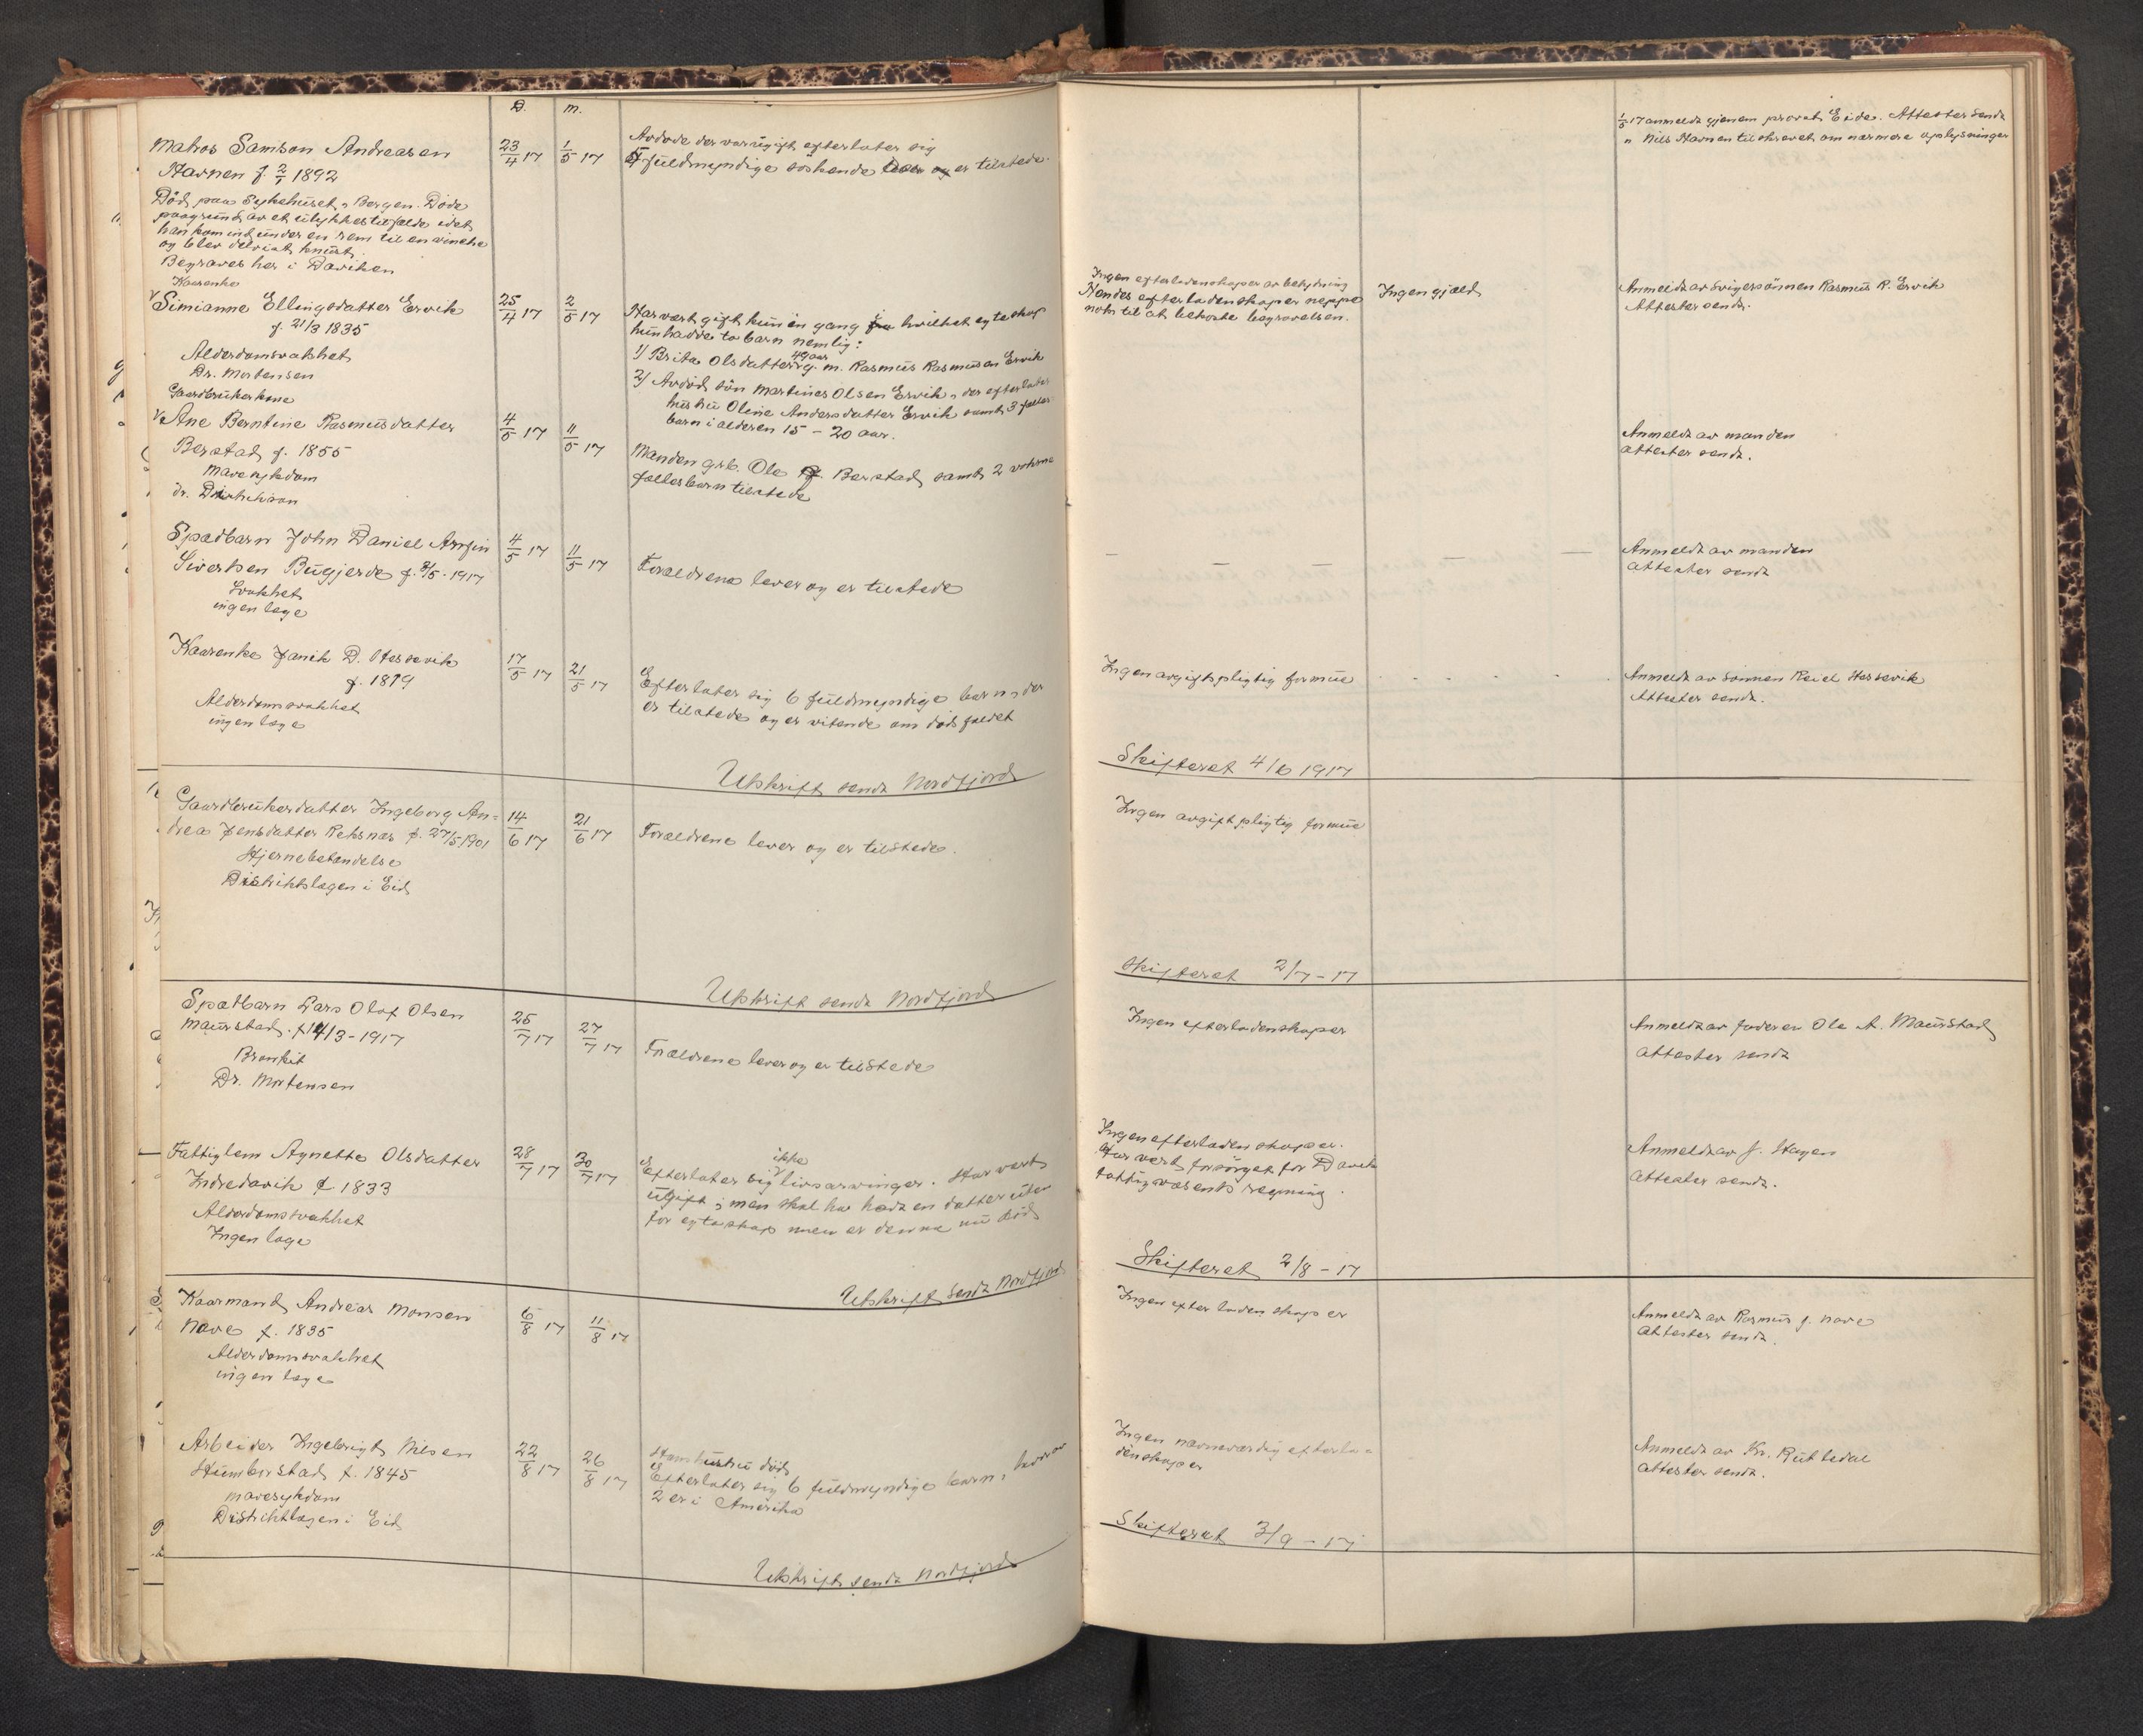 D. m.
Matros Samson Andreasen
Havnen f. 2/1 1892
Død paa Sykehuset, Bergen. Døde
paagrund av et ulykkestilfælde idet
han kom ind under en rem til en vinche
og blev delvist knust.
Begraves her i Daviken
23/4 17 1/5 17
Avdøde der var ugift efterlater sig
5 fuldmyndige søskende er tilstede.
1/5 17 anmeldt gjenem provst Eide. Attester sendt
" Nils Havnen tilskrevet om nærmere oplysninger
Kaarenke
Simianne Ellingsdatter Ervik
f. 21/3 1835
Alderdomsvakhet
Dr. Mortensen
25/4 17 2/5 17
Har vært gift kun én gang hvilket egteskap
hun hadde to barn nemlig:
1) Brita Olsdatter 49 aar g. m. Rasmus Rasmusen Ervik
2) Avdød søn Martines Olsen Ervik, der efterlater
hustru Oline Andersdatter Ervik samt 3 fælles
barn i alderen 15 - 20 aar.
Ingen efterladenskaper av betydning
Hendes efterladenskaper neppe
nok til at bekoste begravelsen.
Ingen gjæld
Anmeldt av svigersønnen Rasmus R. Ervik
Attester sendt.
Gaardbrukerkone
Ane Berntine Rasmusdatter
Berstad f. 1855
Mavesykdom
dr. Dirichson
4/5 17 11/5 17
Manden grb. Ole Berstad samt 2 voksne
fællesbarn tilstede
Anmeldt av manden
attester sendt.
Spædbarn John Daniel Arnfin
Sivertsen Bugjerde f. 3/5 - 1917
Svakhet
ingen læge
4/5 17 11/5 17
Forældrene lever og er tilstede
— — — — —
Anmeldt av manden
attester sendt
Kaarenke Janik D. Hessevik
f. 1819
Alderdomsvakhet
ingen læge
17/5 17 21/5 17
Efterlater sig 6 fuldmyndige barn, der
er tilstede og er vitende om dødsfaldet
Ingen avgiftspligtig formue
Anmeldt av sønnen Reiel Hessevik
Attester sendt.
Utskrift sendt Nordfjord
Skifteret 4/6 1917
Gaardbrukerdatter Ingeborg An=
drea Jensdatter Reksnæs f. 27/5 1901
Hjernebetændelse
Distriktslægen i Eid
14/6 17 21/6 17
Forældrene lever og er tilstede.
Ingen avgiftspligtig formue
Utskrift sendt Nordfjord
Skifteret 2/7 - 17
Spædbarn Lars Olaf Olsen
Maurstad. f. 14/3 - 1917
Bronkit
Dr. Mortensen
25/7 17 27/7 17
Forældrene lever og er tilstede
Ingen efterladenskaper
Anmeldt av faderen Ole A. Maurstad
attester sendt
Fattiglem Agnette Olsdatter
Indredavik f. 1833
Alderdomsvakhet
Ingen læge
28/7 17 30/7 17
Efterlater sig ikke livsarvinger. Har vært
ugift, men skal ha hadt en datter uten
for egteskap men er denne nu død
Ingen efterladenskaper.
Har vært forsørget for Davik
fattigvæsents regning.
Anmeldt av J. Hagen
Attester sendt.
Utskrift sendt Nordfjord
Skifteret 2/8 - 17
Kaarmand Andreas Monsen
Nave f. 1835
Alderdomsvakhet
ingen læge
6/8 17 11/8 17
Ingen efterladenskaper
Anmeldt av Rasmus J. Nave
Attester sendt.
Arbeider Ingebrigt Nilsen
Humborstad f. 1845
Mavesykdom
Distriktlægen i Eid
22/8 17 26/8 17
Hans hustru død
Efterlater sig 6 fuldmyndige barn, hvorav
2 er i Amerika
Ingen nævneværdig efterla=
denskaper
Anmeldt av Kr. Rutledal
attester sendt.
Utskrift sendt Nordfjord
Skifteret 3/9 - 17